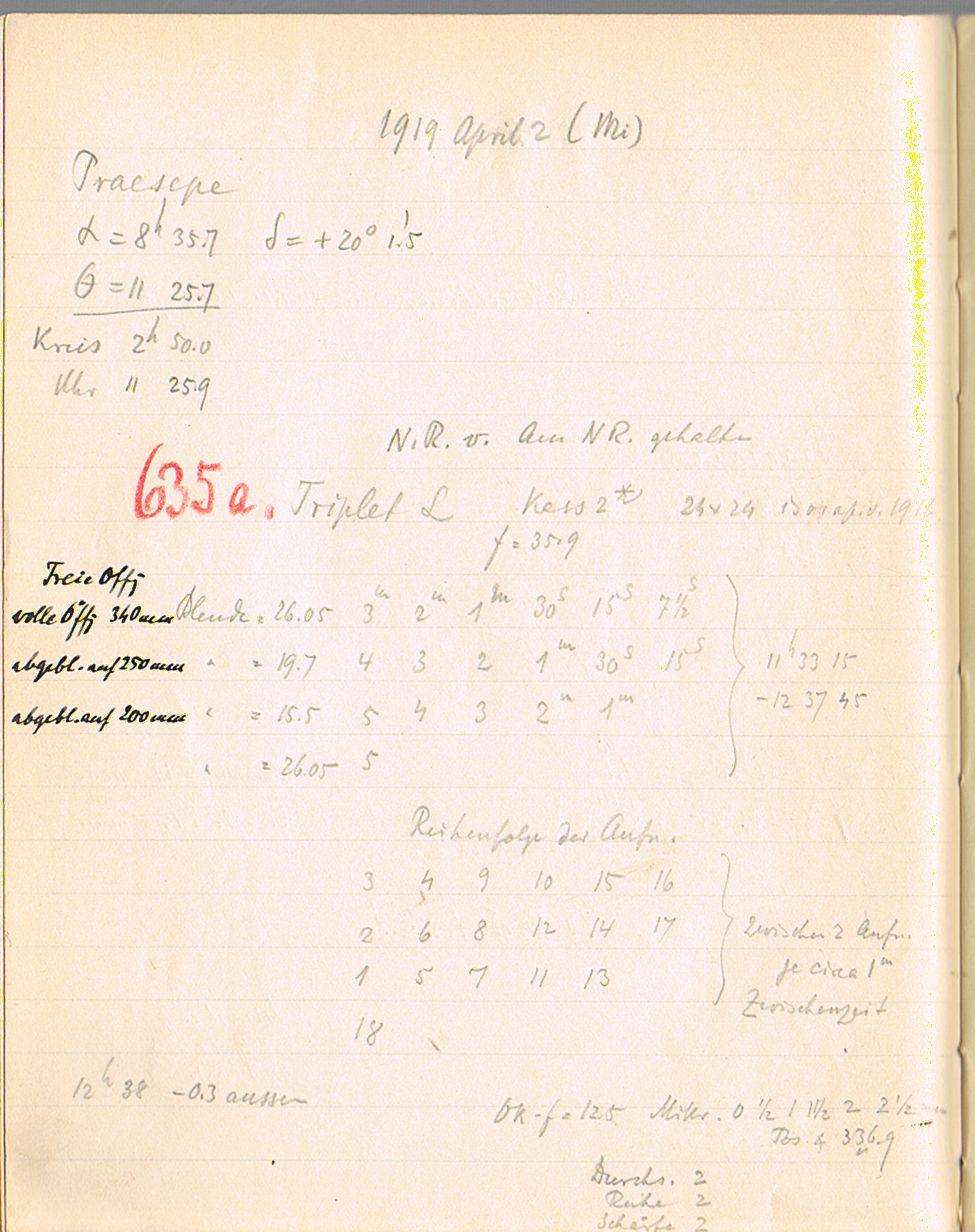 1919 April 2 (Mi)
Praesepe
α = 8h 35.7 δ = +20° 1.'5
θ = 11 25.7
Kreis 2h 50.0
Uhr 11 25.9
N.R. v. Am NR. gehalten
635a. Triplet L Kass 2* 24×24
f = 35.9
Freie Öff
volle Öff 340mm Blende = 26.05 3m 2m 1m 30s 15s 7½s
abgebl. auf 250mm " = 19.7 4 3 2 1m 30s 15s
11h 33 15
abgebl. auf 200mm " = 15.5 5 4 3 2m 1m
-12 37 45
" = 26.05 5
Reihenfolge der Aufn.
3 4 9 10 15 16
2 6 8 12 14 17 Zwischen 2 Aufn.
1 5 7 11 13 je circa 1m
Zwischenzeit
18
12h 38 -0.3 aussen
Ok-f = 12.5 Mikr. 0 ½ 1 1½ 2 2½
Pos. 336.9
Durchs. 2
Ruhe 2
Schärfe 2